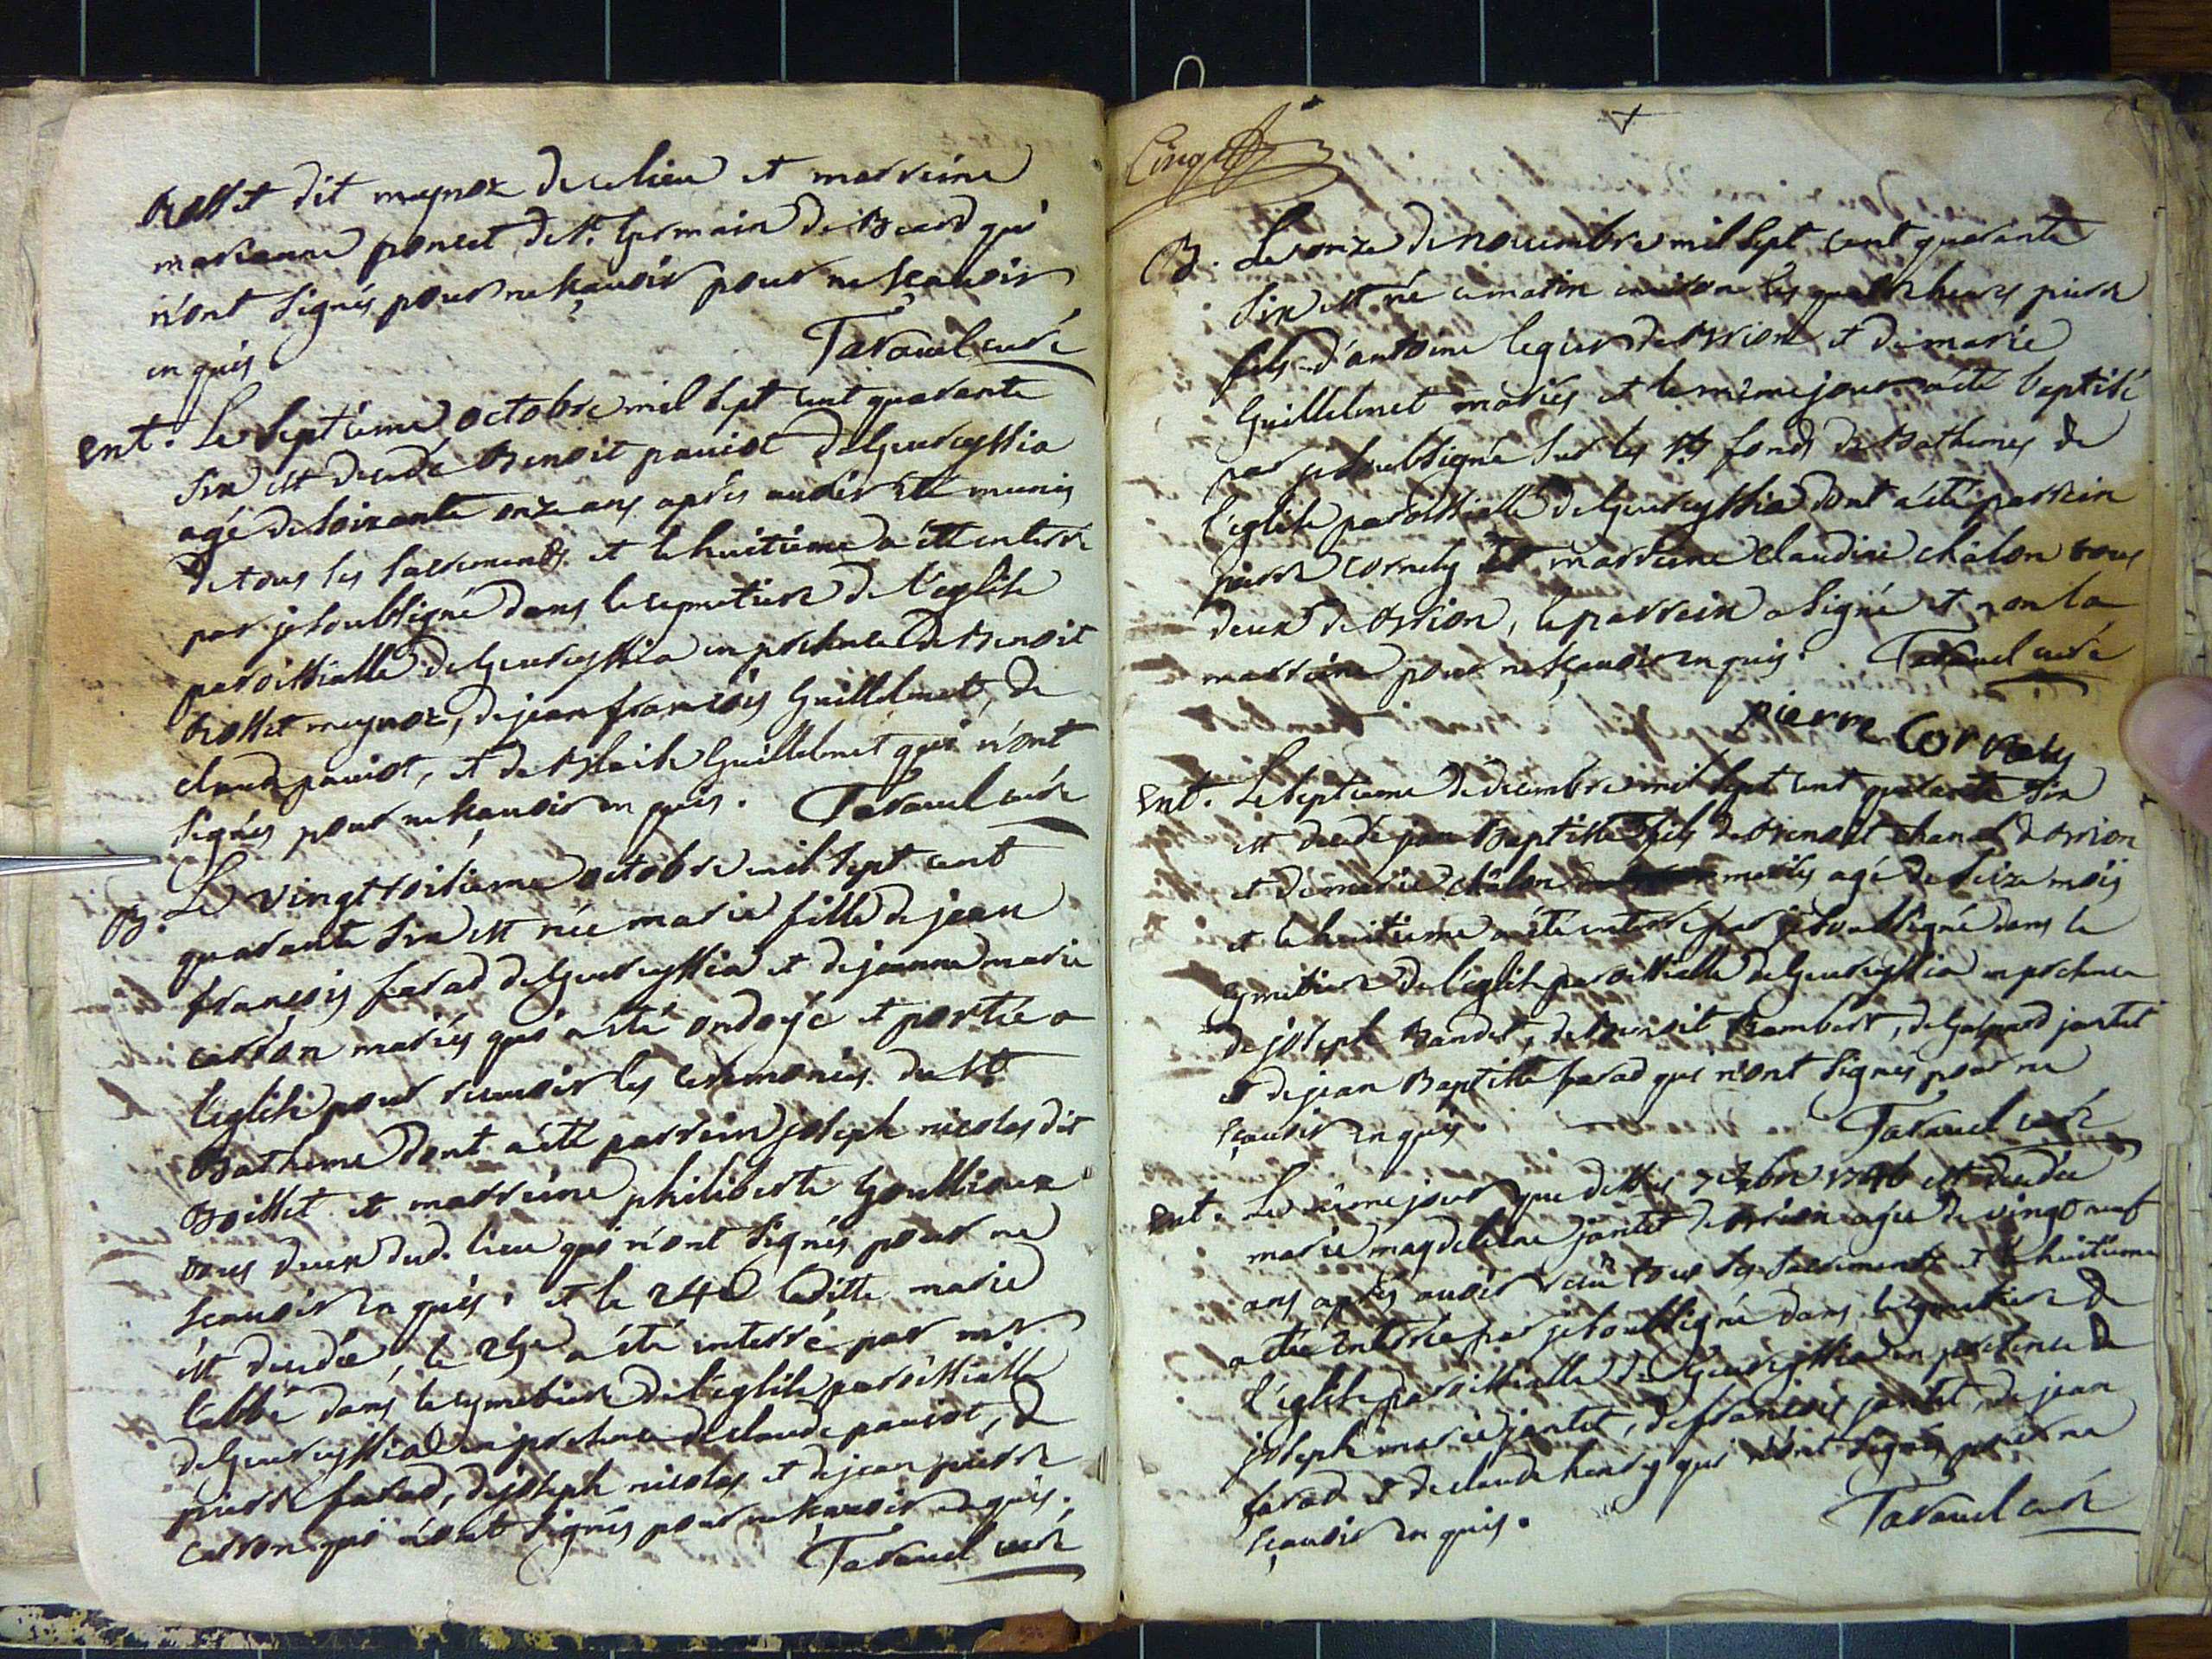 Rosset dit meynoz de ce lieu et marreine
marianne poncet de st. germain de Beard qui
n'ont signés pour ne sçavoir pour ne sçavoir
en quis Taravel curé
Ent. Le septiéme octobre mil sept cent quarante
six est decedé Benoit paviot de Geureyssia
agé de soixante onze ans aprés avoir eté munis
de tous les sacrements et le huitiéme a été enterré
par je soussigné dans le cymetiere de l'eglise
paroissialle de Geureyssia en presence de Benoit
Rosset meynoz, de jean françois Guillelmet, de
claude paviot, et de Blaise Guillelmet qui n'ont
signés pour ne sçavoir en quis. Taravel curé
B. Le vingt troisieme octobre mil sept cent
quarante six est née marie fille de jean
françois farad de Geureyssia et de jeanne marie
carron mariés qui a été ondoÿé et portée a
l'eglise pour recevoir les ceremonies du st
Batheme dont a été parrein joseph nicolas dit
Boisset et marreine philiberte Goussioux
tous deux dud. lieu qui n'ont signés pour ne
scavoir en quis. et le 24e laditte marie
est decedée, le 25e a été enterré par mr.
l'abbé dans le cymetiere de l'eglise paroissialle
de Geureyssia en presence de claude paviot, de
pierre farad, de joseph nicolas et de jean pierre
carron qui n'ont signés pour ne sçavoir en quis.
Taravel curé
Cinq
B. Le onze de novembre mil sept cent quarante
six est né ce matin environ les quatre heures pierre
fils d'antoine leger de Brion et de marie
Guillelmet mariés et le même jour a été baptisé
par je soussigné sur les sts fonds de Bathemes de
l'eglise paroissialle de Geureyssia dont a été parrein
pierre cornely et marreine claudine châlon tous
deux de Brion, le parrein a signé et non la
marreine pour ne sçavoir en quis. Taravel curé
pierre Cornely
Ent. Le septieme de decembre mil sept cent quarante six
est decedé jean Baptiste fils de Benoit chanel de Brion
et de marie châlon mariés agé de seize mois
et le huitieme a été enterré par je soussigné dans le
cymetiere de l'eglise paroissialle de Geureyssia en presence
de joseph Bandet, de Benoit Rambert, de Gaspard jantet
et de jean Baptiste farad qui n'ont signés pour ne
sçavoir en quis. Taravel curé
Ent. Le même jour que dessus 7e xbre 1746 est decedée
marie magdeleine jantet de Brion agée de vingt neuf
ans aprés avoir reçû tous les sacrements et le huitieme
a été enterrée par je soussigné dans le cymetiere de
l'eglise paroissialle de Geureyssia en presence de
joseph marie jantet, de françois jantet, de jean
farad et de claude henry qui n'ont signés pour ne
sçavoir en quis. Taravel curé